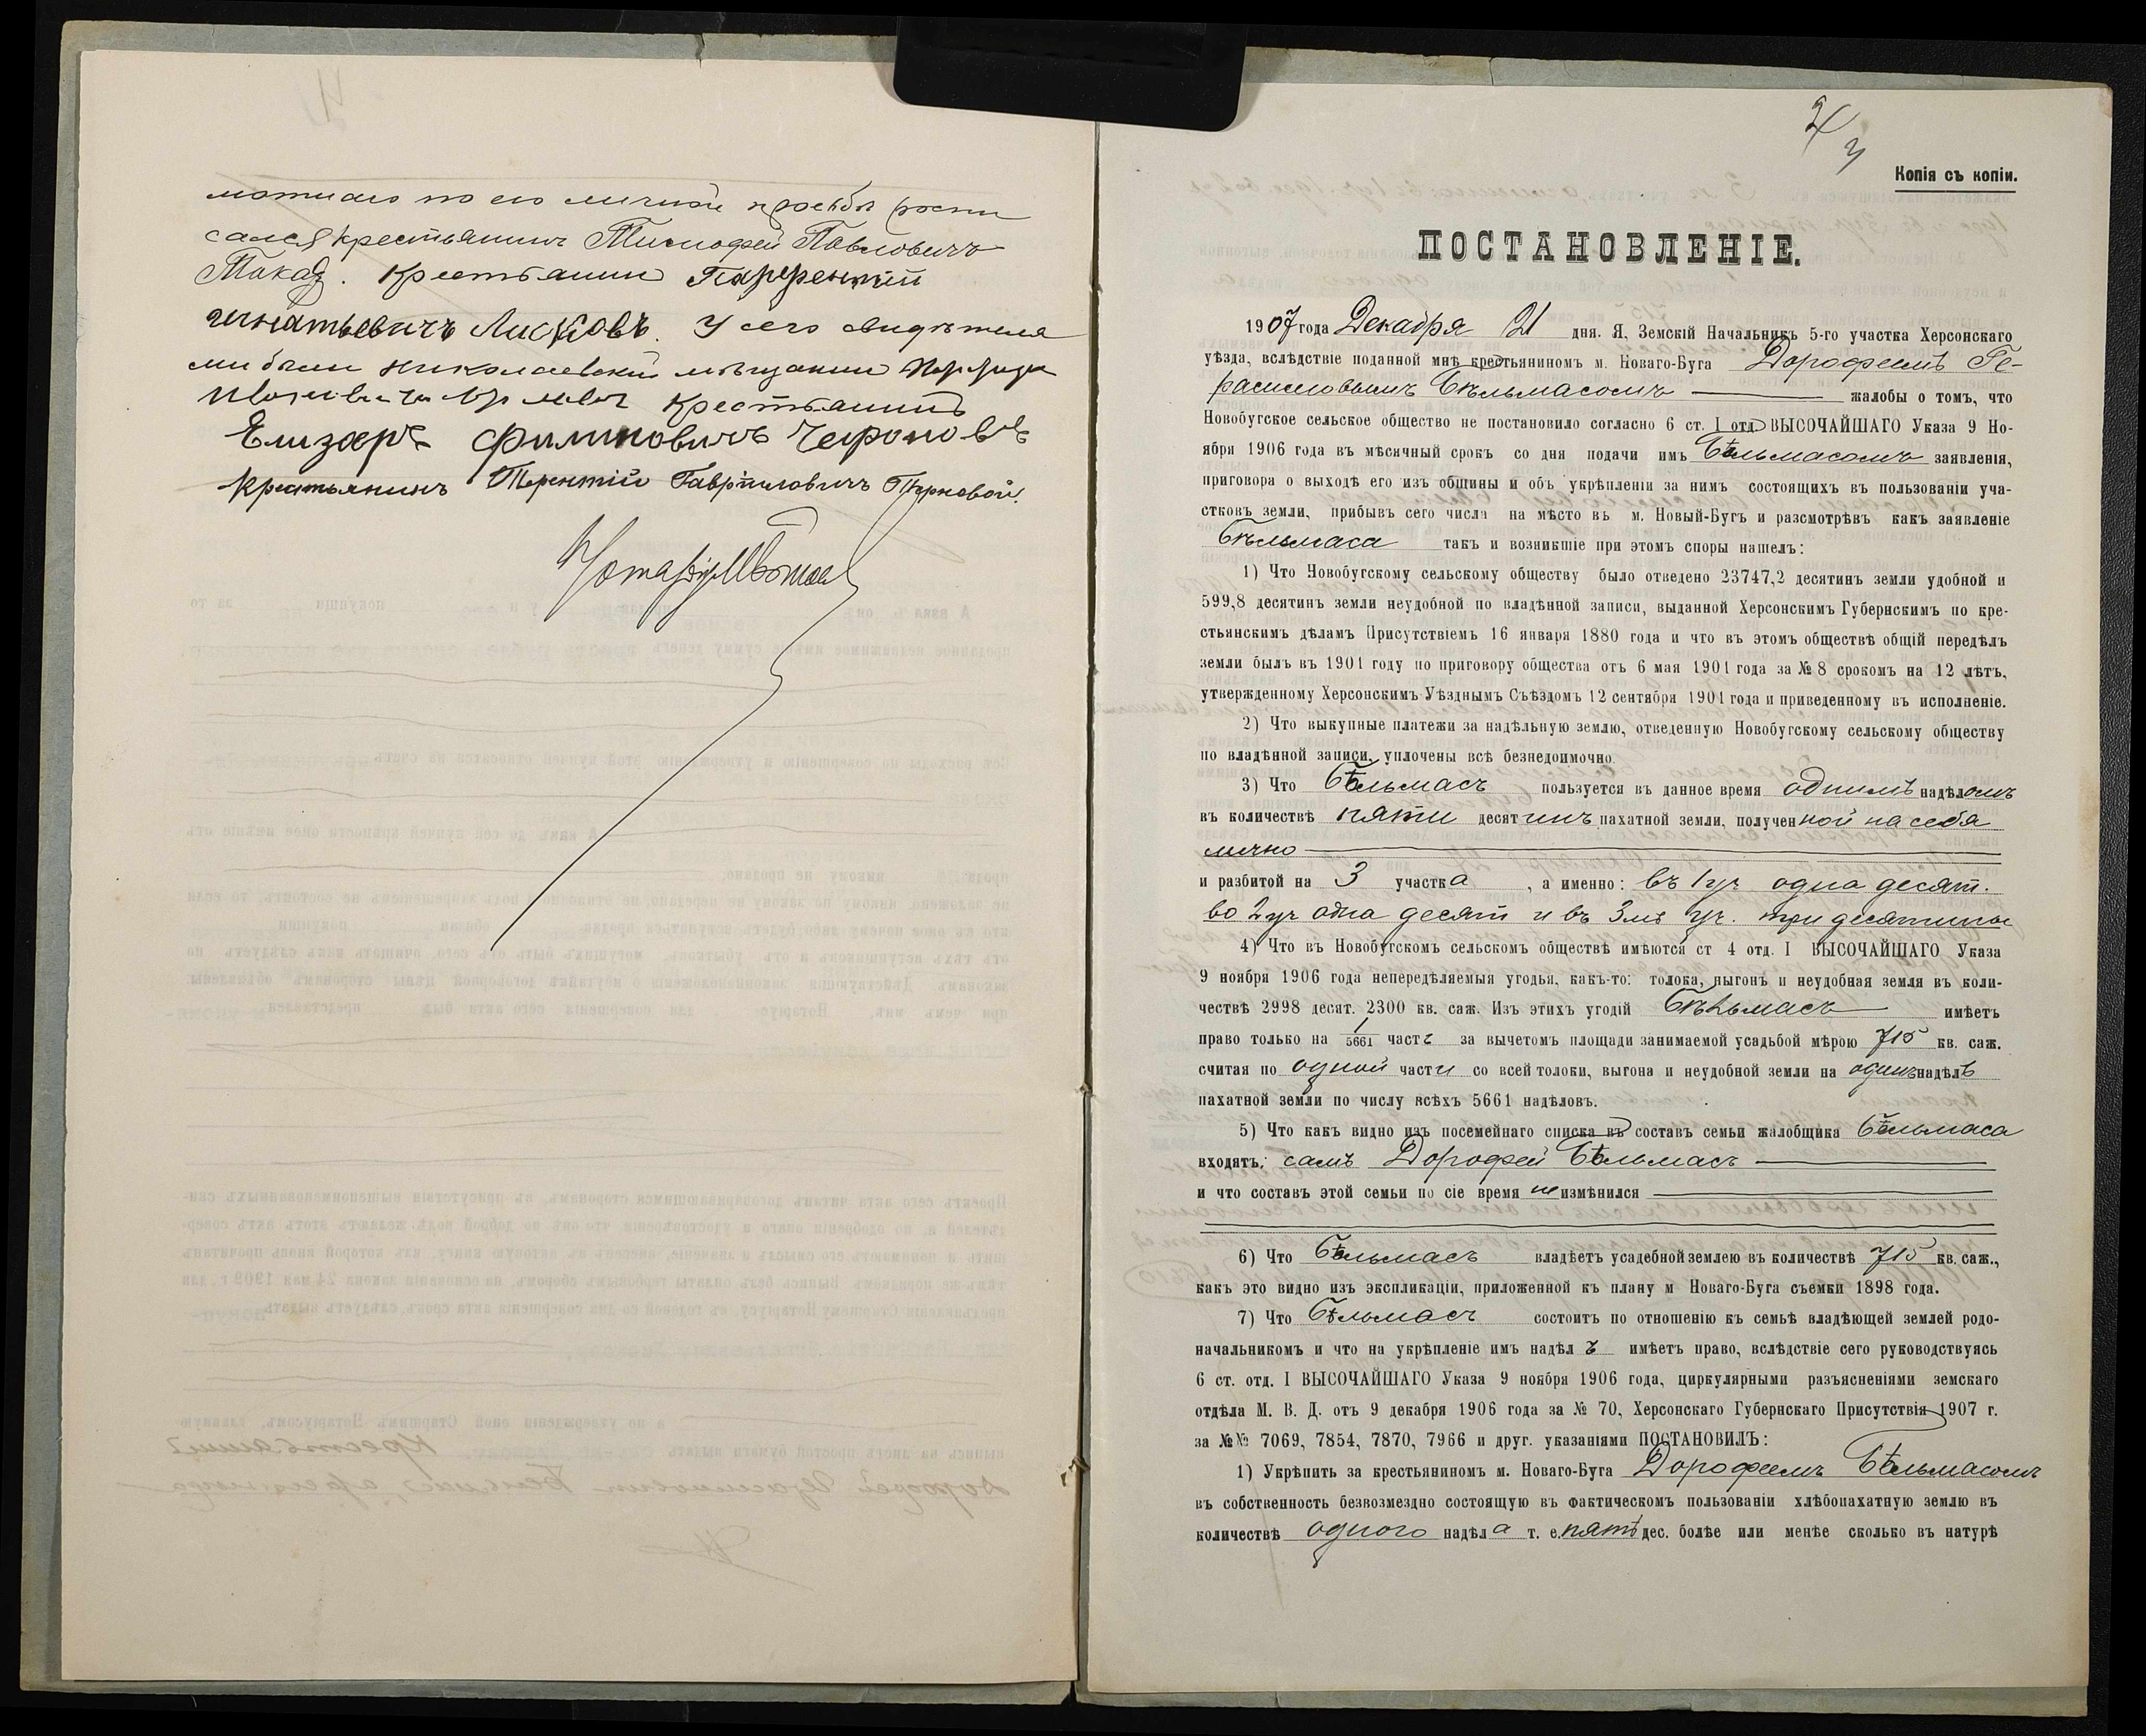 мотнаго по его личной просьбѣ распи
сался крестьянинъ Тимофей Павловичъ
Крестьянин Парфентий
Игнатьевичъ Лисковъ. У сего свидѣтеля
ми были николаевский мѣщанин
крестьянинъ
Елизаръ Филиповичъ
крестьянинъ Терентій Гавриловичъ Терновой.
Нотаріус
Копія съ копіи.
ПОСТАНОВЛЕНІЕ.
1907 года Декабря 21 дня. Я, Земскій Начальникъ 5-го участка Херсонскаго
уѣзда, вслѣдствіе поданной мнѣ крестьяниномъ м. Новаго-Буга Дорофеемъ Ге-
расимовымъ Бѣльмасомъ жалобы о томъ, что
Новобугское сельское общество не постановило согласно 6 ст. I отд. ВЫСОЧАЙШАГО Указа 9 Но-
ября 1906 года въ мѣсячный срокъ со дня подачи имъ Бѣльмасомъ заявленія,
приговора о выходѣ его изъ общины и объ укрѣпленіи за нимъ состоящихъ въ пользованіи уча-
стковъ земли, прибывъ сего числа на мѣсто въ м. Новый-Бугъ и разсмотрѣвъ какъ заявленіе
Бѣльмаса такъ и возникшіе при этомъ споры нашелъ:
1) Что Новобугскому сельскому обществу было отведено 23747,2 десятинъ земли удобной и
599,8 десятинъ земли неудобной по владѣнной записи, выданной Херсонскимъ Губернскимъ по кре-
стьянскимъ дѣламъ Присутствіемъ 16 января 1880 года и что въ этомъ обществѣ общій передѣлъ
земли былъ въ 1901 году по приговору общества отъ 6 мая 1901 года за № 8 срокомъ на 12 лѣтъ,
утвержденному Херсонскимъ Уѣзднымъ Съѣздомъ 12 сентября 1901 года и приведенному въ исполненіе.
2) Что выкупные платежи за надѣльную землю, отведенную Новобугскому сельскому обществу
по владѣнной записи, уплочены всѣ безнедоимочно.
3) Что Бѣльмасъ пользуется въ данное время однимъ надѣломъ
въ количествѣ пяти десятинъ пахатной земли, полученной на себя
лично
и разбитой на 3 участка, а именно: въ 1 уч одна десят.
во 2 уч одна десят и въ 3мъ уч. три десятины
4) Что въ Новобугскомъ сельскомъ обществѣ имѣются ст 4 отд. I ВЫСОЧАЙШАГО Указа
9 ноября 1906 года непередѣляемыя угодья, какъ-то: толока, выгонъ и неудобная земля въ коли-
чествѣ 2998 десят. 2300 кв. саж. Изъ этихъ угодій Бѣльмасъ имѣетъ
право только на 1/5661 часть за вычетомъ площади занимаемой усадьбой мѣрою 715 кв. саж.
считая по одной части со всей толоки, выгона и неудобной земли на одинъ надѣлъ
пахатной земли по числу всѣхъ 5661 надѣловъ.
5) Что какъ видно изъ посемейнаго списка въ составъ семьи жалобщика Бѣльмаса
входятъ: самъ Дорофей Бѣльмасъ
и что составъ этой семьи по сіе время не измѣнился
6) Что Бѣльмасъ владѣетъ усадебной землею въ количествѣ 715 кв. саж.,
какъ это видно изъ экспликаціи, приложенной къ плану м Новаго-Буга съемки 1898 года.
7) Что Бѣльмасъ состоитъ по отношенію къ семьѣ владѣющей землей родо-
начальникомъ и что на укрѣпленіе имъ надѣлъ имѣетъ право, вслѣдствіе сего руководствуясь
6 ст. отд. I ВЫСОЧАЙШАГО Указа 9 ноября 1906 года, циркулярными разъясненіями земскаго
отдѣла М. В. Д. отъ 9 декабря 1906 года за № 70, Херсонскаго Губернскаго Присутствія 1907 г.
за №№ 7069, 7854, 7870, 7966 и друг. указаніями ПОСТАНОВИЛЪ:
1) Укрѣпить за крестьяниномъ м. Новаго-Буга Дорофеемъ Бѣльмасомъ
въ собственность безвозмездно состоящую въ фактическомъ пользованіи хлѣбопахатную землю въ
количествѣ одного надѣла т. е. пять дес. болѣе или менѣе сколько въ натурѣ